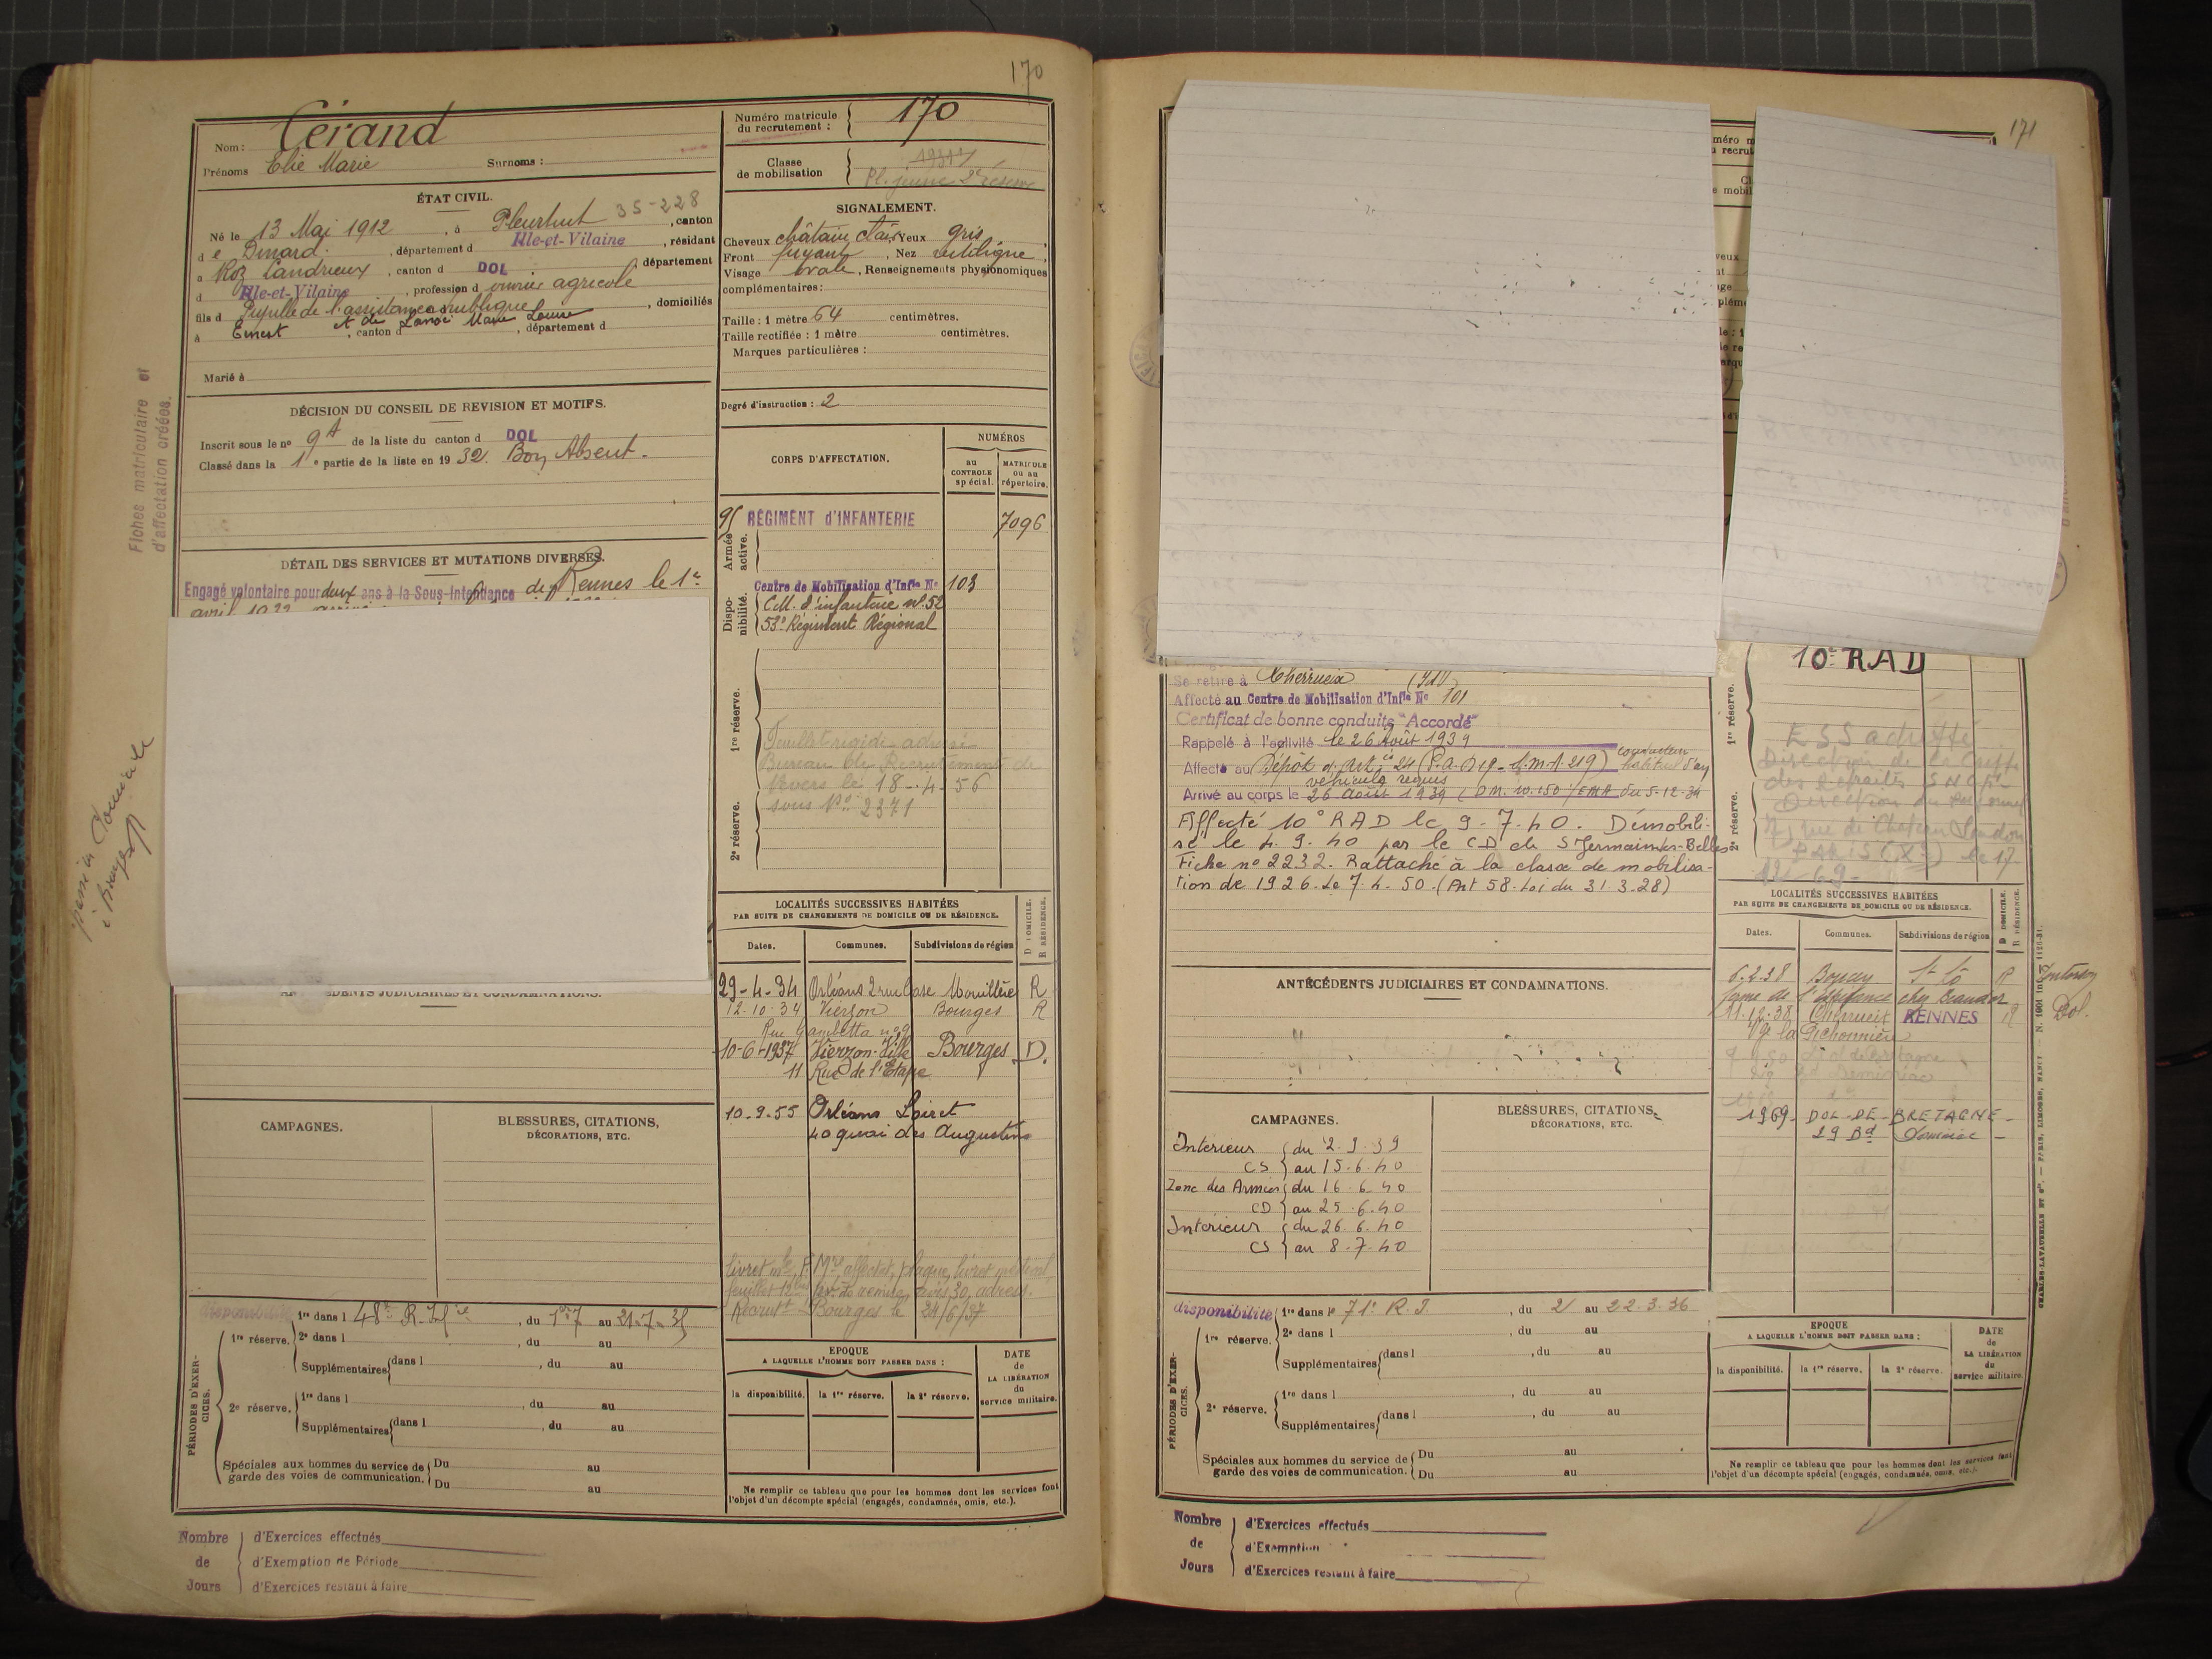 170
Nom : Cérand
Prénoms Elie Marie Surnoms :
Numéro matricule du recrutement : 170
Classe de mobilisation
Pl. jeune 2e réserve
ÉTAT CIVIL.
Né le 13 Mai 1912, à Pleurtuit 35-228, canton
de Dinard, département d Ille-et-Vilaine, résidant
a Roz Landrieux, canton d DOL département
d Ille-et-Vilaine, profession d ouvrier agricole
fils d Pupille de l'assistance publique, domiciliés
à Ernest et de Marie Louise, canton d , département d
Marié à
SIGNALEMENT.
Cheveux châtain clair Yeux gris
Front fuyant, Nez rectiligne
Visage ovale, Renseignements physionomiques
complémentaires :
Taille : 1 mètre 64 centimètres.
Taille rectifiée : 1 mètre centimètres.
Marques particulières :
Degré d'instruction : 2
DÉCISION DU CONSEIL DE REVISION ET MOTIFS.
Inscrit sous le no 9A de la liste du canton d DOL
Classé dans la 1e partie de la liste en 1932. Bon Absent.
Fiches matriculaire et
d'affectation créées.
DÉTAIL DES SERVICES ET MUTATIONS DIVERSES.
Engagé volontaire pour deux ans à la Sous-Intendance de Rennes le 1er
CORPS D'AFFECTATION.
NUMÉROS
au CONTROLE spécial.
MATRICULE ou au répertoire.
Armée active.
95 RÉGIMENT d'INFANTERIE 7096
Disponibilité.
Centre de Mobilisation d'Infie No 103
C.M. d'infanterie no 52
53e Régiment Régional
1re réserve.
Feuillet rigide adressé
Bureau de Recrutement de
Nevers le 18-4-56
sous No 2371
2e réserve.
LOCALITÉS SUCCESSIVES HABITÉES
PAR SUITE DE CHANGEMENTS DE DOMICILE OU DE RÉSIDENCE.
D DOMICILE.
R RÉSIDENCE.
Dates. Communes. Subdivisions de région
29-4-34 Orléans 2 rue Case Mouillère R
12.10.34 Vierzon Bourges R
Rue Gambetta no 9
10-6-1937 Vierzon-Ville Bourges D.
11 Rue de l'Etape
10.9.55 Orléans Loiret
40 quai des Augustins
Recrutt Bourges le 24/6/37
ANTÉCÉDENTS JUDICIAIRES ET CONDAMNATIONS.
CAMPAGNES.
BLESSURES, CITATIONS,
DÉCORATIONS, ETC.
PÉRIODES D'EXERCICES.
disponibilité
1re dans l 48e R. Infie, du 1er-7 au 21-7-35
1re réserve. 2e dans l , du au
Supplémentaires dans l , du au
2e réserve. 1re dans l , du au
Supplémentaires dans l , du au
Spéciales aux hommes du service de garde des voies de communication. Du au
Du au
EPOQUE
A LAQUELLE L'HOMME DOIT PASSER DANS :
la disponibilité. la 1re réserve. la 2e réserve.
DATE de LA LIBÉRATION du service militaire.
Ne remplir ce tableau que pour les hommes dont les services font
l'objet d'un décompte spécial (engagés, condamnés, omis, etc.).
Nombre de Jours
d'Exercices effectués
d'Exemption de Période
d'Exercices restant à faire
171
Se retire à Cherrueix (I&V)
Affecté au Centre de Mobilisation d'Infie No 101
Certificat de bonne conduite "Accordé"
Rappelé à l'activité le 26 Août 1939
Affecté au Dépôt d'Artie 24 (P.A.D 19 - 4.m.1.219) conducteur habituel d'un
véhicule requis
Arrivé au corps le 26 Août 1939 (DM. 10.150/EMA du 5-12-34
Affecté 10e RAD le 9-7-40. Démobili-
sé le 4.9.40 par le CD de St Germain-les-Belles
Fiche no 2232. Rattaché à la classe de mobilisa-
tion de 1926. Le 7.4.50. (Art 58. Loi du 31.3.28)
10e RAD
1re réserve.
ESS adressé
Direction de la Caisse
des Retraités SNCF
Direction du Personnel
rue de Chateau Landon
PARIS (Xe) le 17
2e réserve.
LOCALITÉS SUCCESSIVES HABITÉES
PAR SUITE DE CHANGEMENTS DE DOMICILE OU DE RÉSIDENCE.
D DOMICILE.
R RÉSIDENCE.
Dates. Communes. Subdivisions de région
6.2.38 Boucey St Lô R Pontorson
11.12.38 Cherrueix RENNES R Dol.
Vge la Pichonnière
1969 - DOL-DE-BRETAGNE -
29 Bd Deminiac -
ANTÉCÉDENTS JUDICIAIRES ET CONDAMNATIONS.
CAMPAGNES.
BLESSURES, CITATIONS,
DÉCORATIONS, ETC.
Intérieur du 2.9.39
CS au 15.6.40
Zone des Armées du 16.6.40
CD au 25.6.40
Intérieur du 26.6.40
CS au 8.7.40
PÉRIODES D'EXERCICES.
disponibilité 1re dans le 71e R.I, du 2 au 22.3.36
1re réserve. 2e dans l , du au
Supplémentaires dans l , du au
2e réserve. 1re dans l , du au
Supplémentaires dans l , du au
Spéciales aux hommes du service de garde des voies de communication. Du au
Du au
EPOQUE
A LAQUELLE L'HOMME DOIT PASSER DANS :
la disponibilité. la 1re réserve. la 2e réserve.
DATE de LA LIBÉRATION du service militaire.
Ne remplir ce tableau que pour les hommes dont les services font
l'objet d'un décompte spécial (engagés, condamnés, omis, etc.).
Nombre de Jours
d'Exercices effectués
d'Exemption
d'Exercices restant à faire
CHARLES-LAVAUZELLE ET Cie. — PARIS, LIMOGES, NANCY